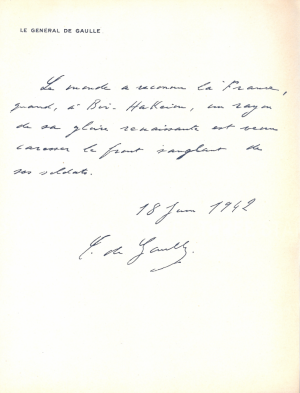 LE GÉNÉRAL DE GAULLE
Le monde a reconnu la France,
quand, à Bir-Hakeim, un rayon
de sa gloire renaissante est venu
caresser le front sanglant de
ses soldats.
18 Juin 1942
C. de Gaulle.